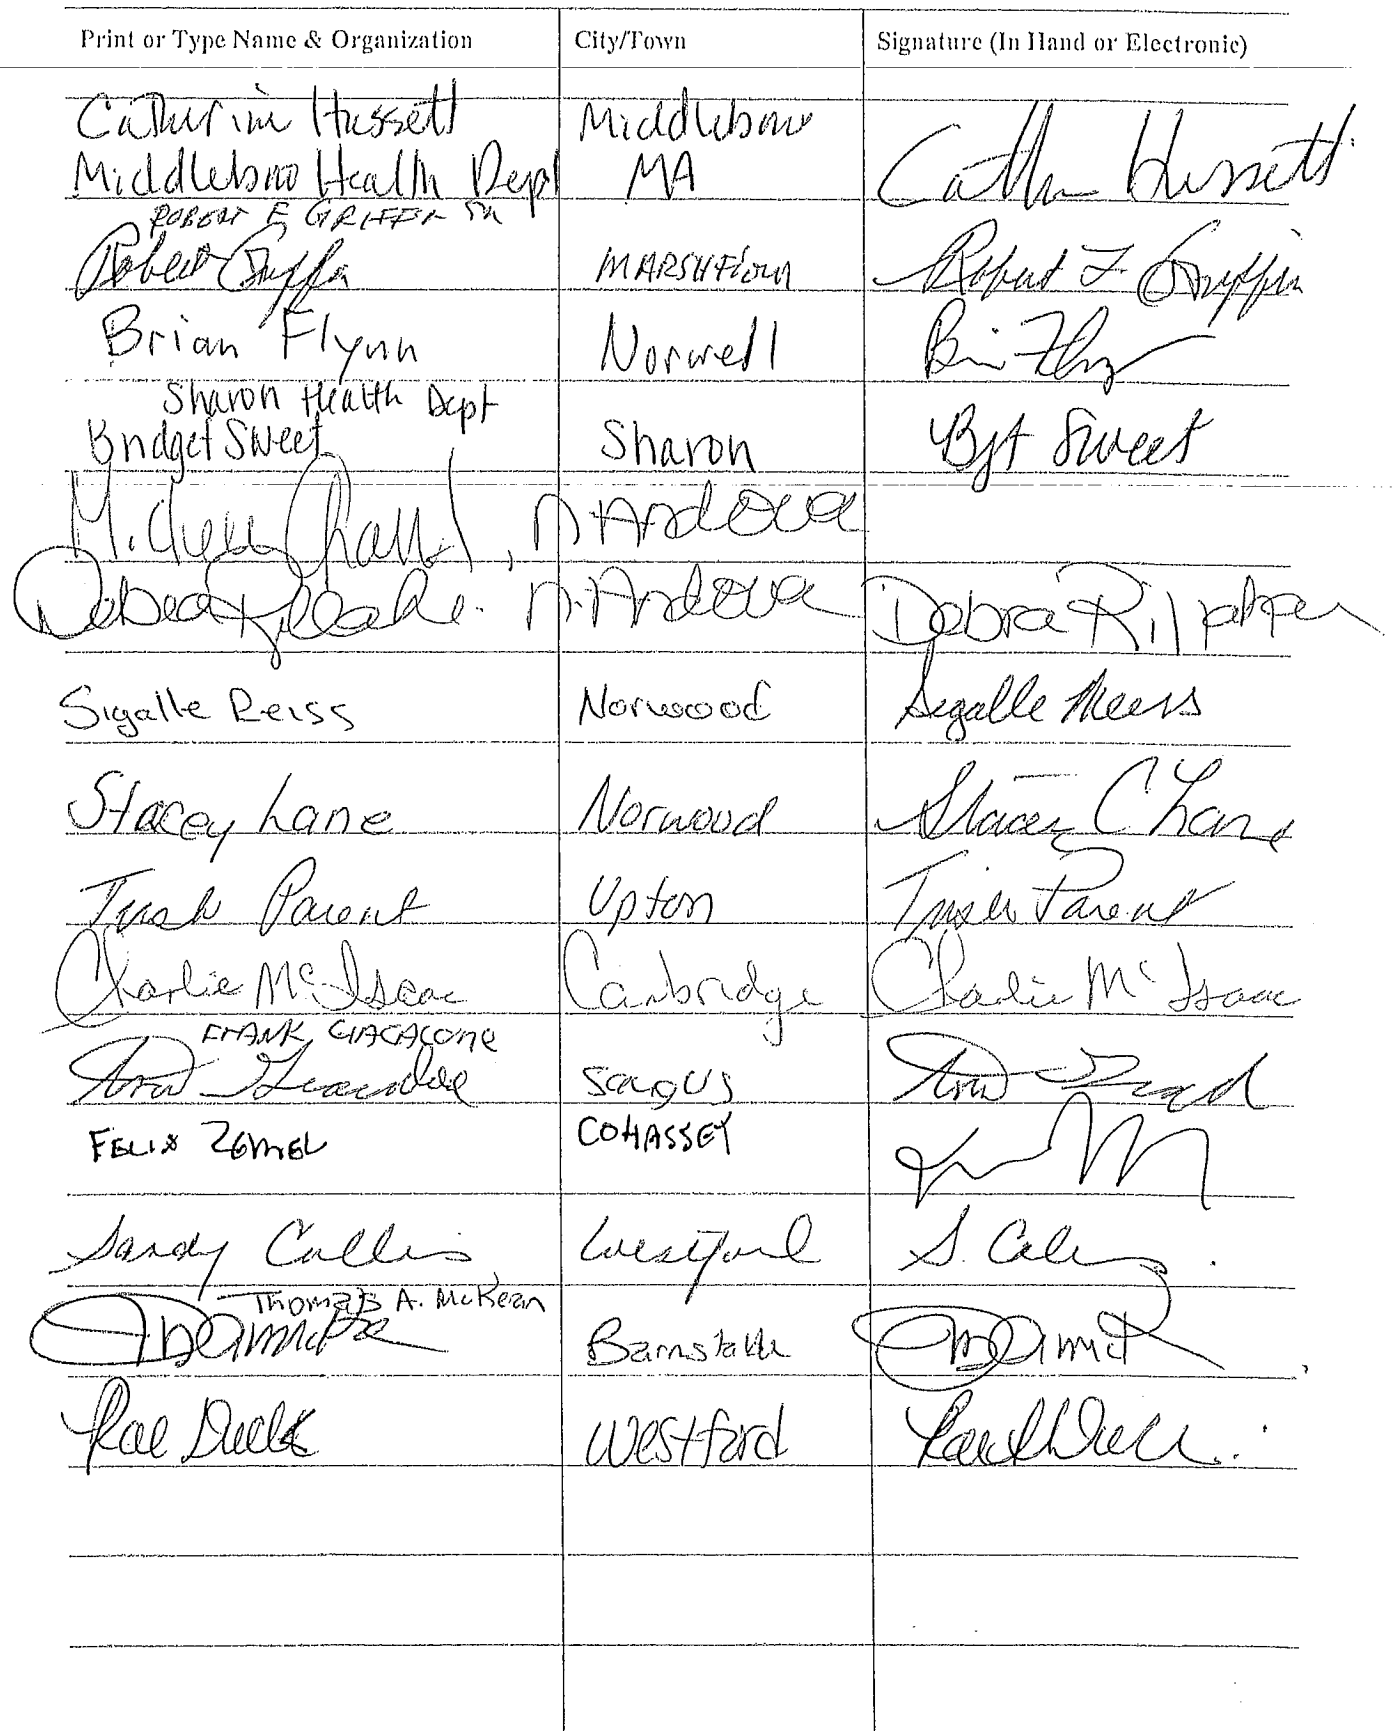 Print or Type Name & Organization City/Town Signature (In Hand or Electronic)
Catherine Hassett Middleboro
Middleboro Health Dept MA Hassett
ROBERT E GRIFFIN
Robert Griffin MARSHFIELD Robert Griffin
Brian Flynn Norwell
Sharon Health Dept
Bridget Sweet Sharon Bgt Sweet
N. Andover
Debra N. Andover Debra Rillahan
Sigalle Reiss Norwood Sigalle Reiss
Stacey Lane Norwood Stacey C Lane
Trish Parent Upton Trish Parent
Charlie McIsaac Cambridge Charlie McIsaac
FRANK GIACALONE
Saugus
FELIX ZEMEL COHASSET
Sandy Collins Westford S. Collins
Thomas A. McKean
Barnstable
Rae Westford